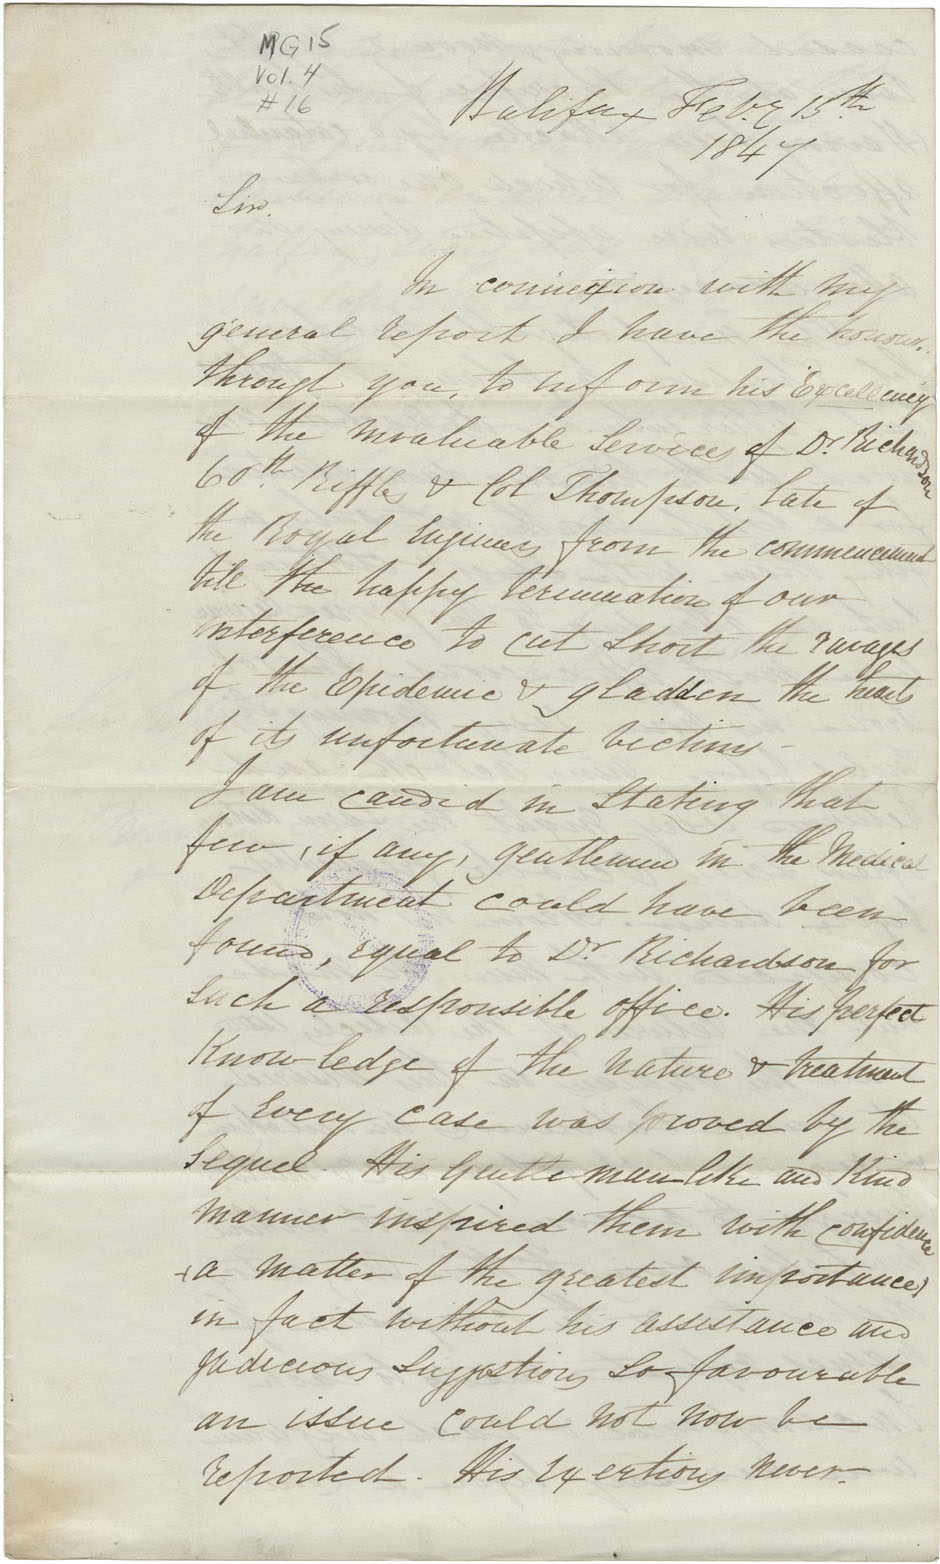 MG15
Vol. 4
#16
Halifax Feby 15th
1847
Sir.
In connexion with my
general report I have the honour,
through you, to inform his Excellency
of the invaluable Services of Dr. Richardson
60th Riffles & Col Thompson, late of
the Royal Engineers from the commencement
till the happy termination of our
interference to cut short the ravages
of the Epidemic & gladden the hearts
of its unfortunate victims -
I am candid in Stating that
few, if any, gentlemen in the Medical
Department could have been
found, equal to Dr. Richardson for
such a responsible office. His perfect
Knowledge of the nature & treatment
of Every case was proved by the
Sequel. His gentlemanlike and Kind
manner inspired them with confidence
(a matter of the greatest importance)
in fact without his assistance and
judicious Suggestions So favourable
an issue could not now be
reported. His Exertions never